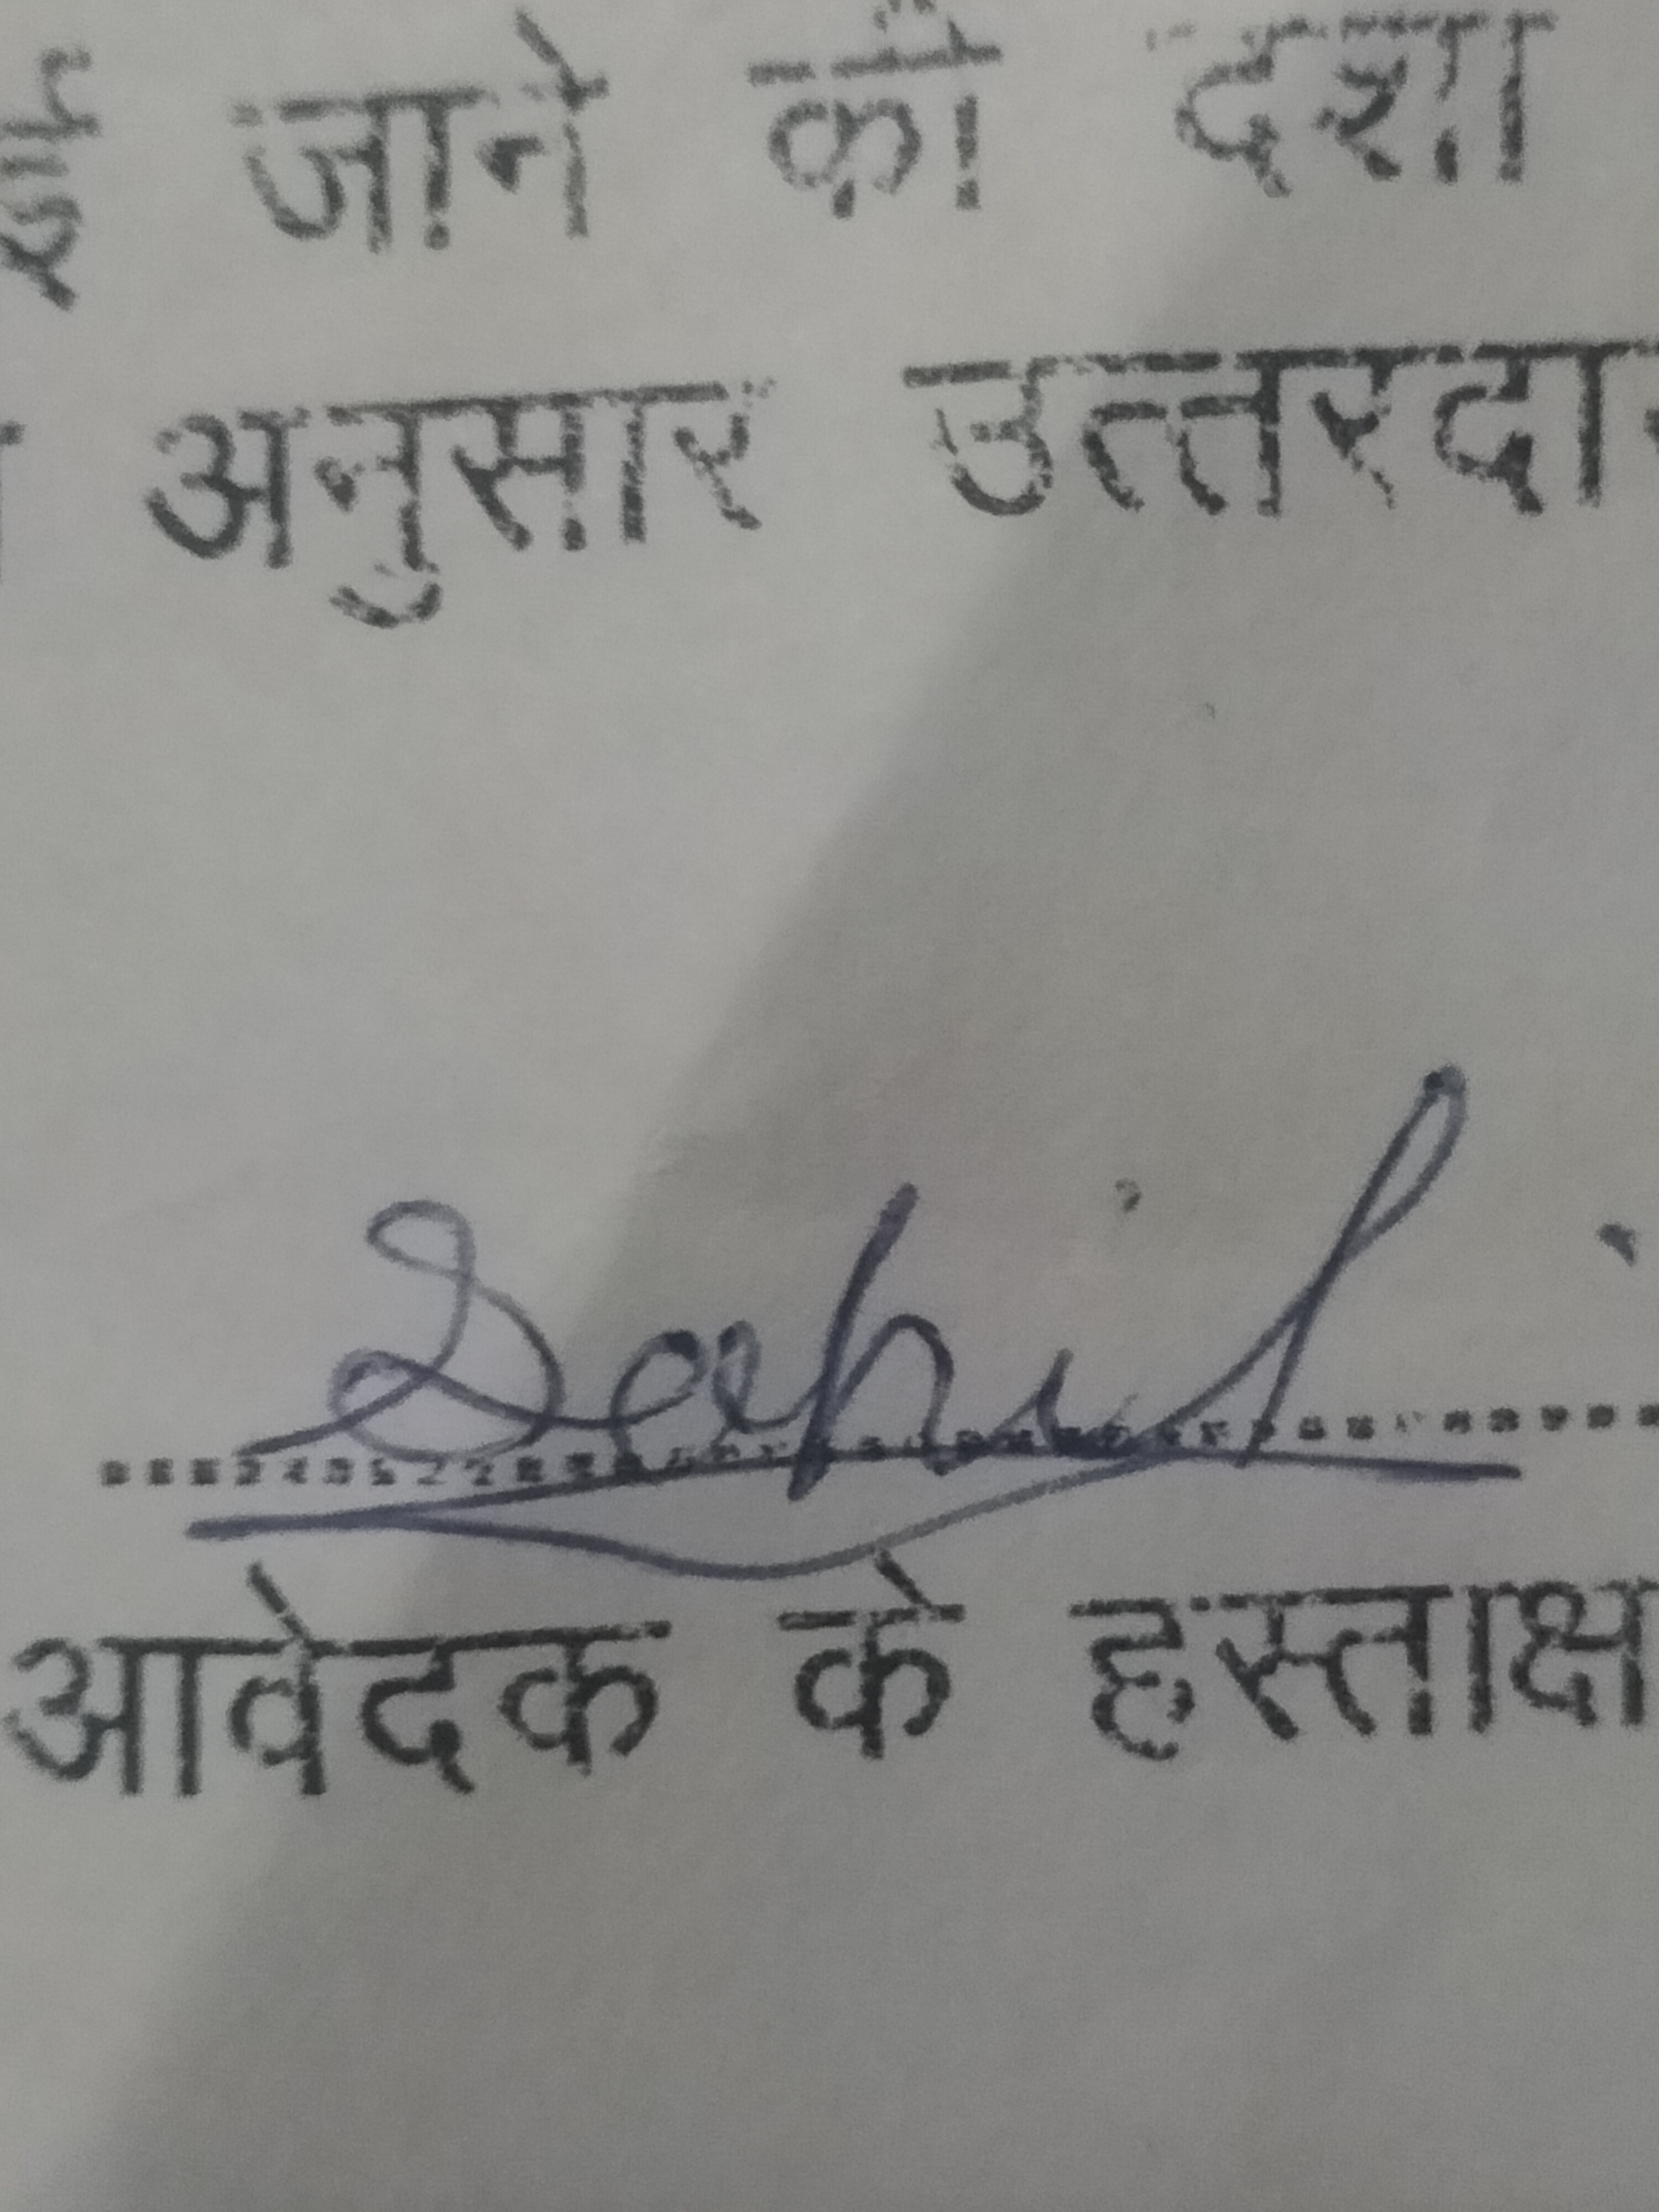 ई जाने की दशा
अनुसार उत्तरदा
Sahil
आवेदक के हस्ताक्ष